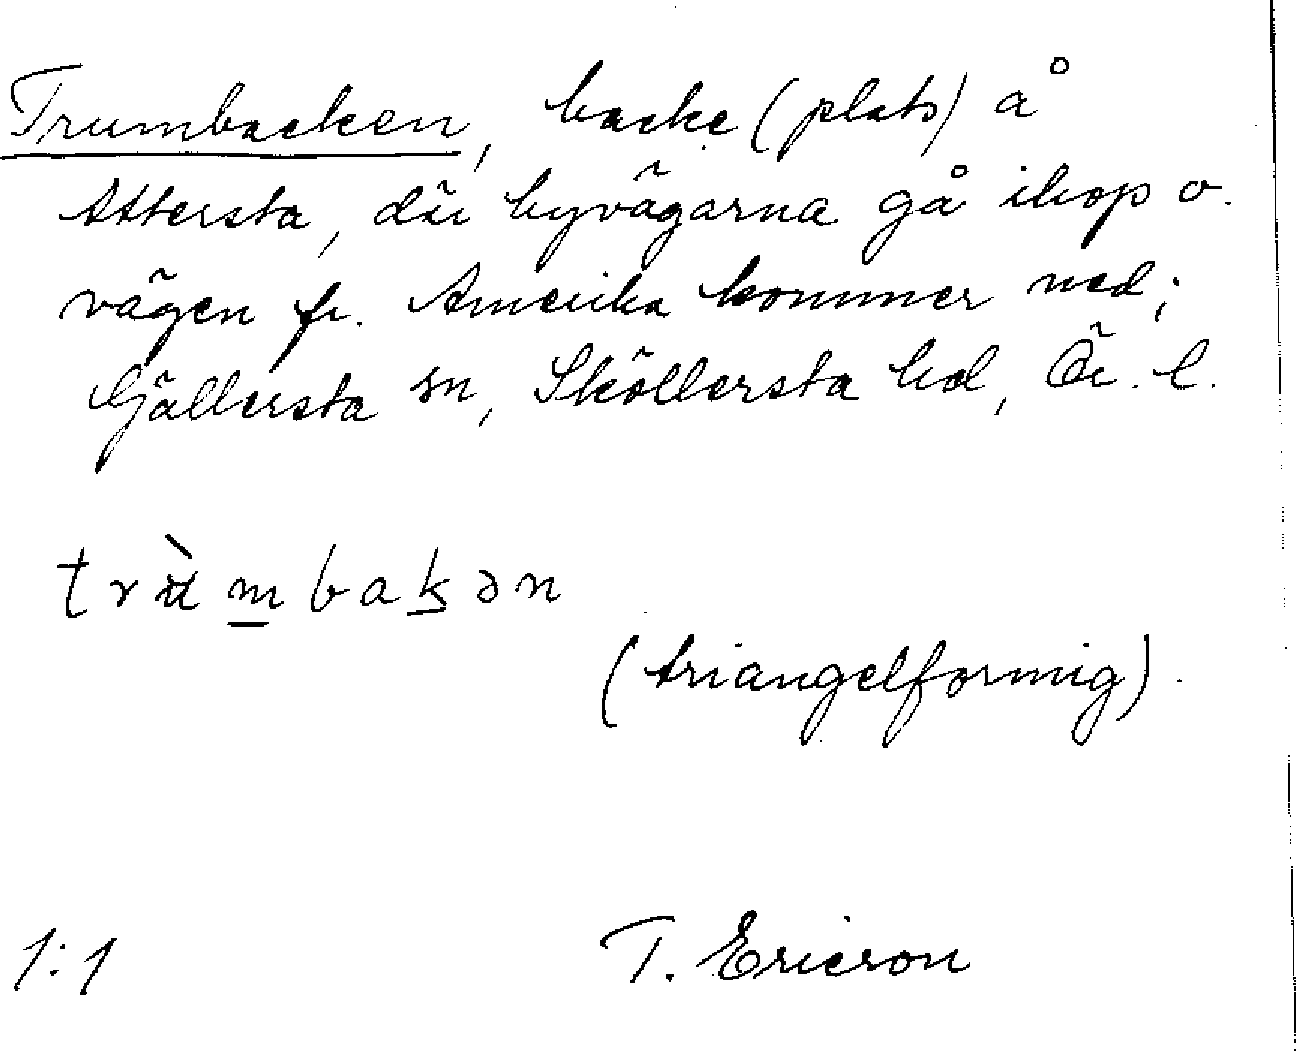 Trumbacken, backe (plats) å
Attersta, där byvägarna gå ihop o.
vägen fr. Amerika kommer ned;
Gällersta sn, Sköllersta hd, Ör. l.
trùmbakən
(triangelformig).
1:1
T. Ericson